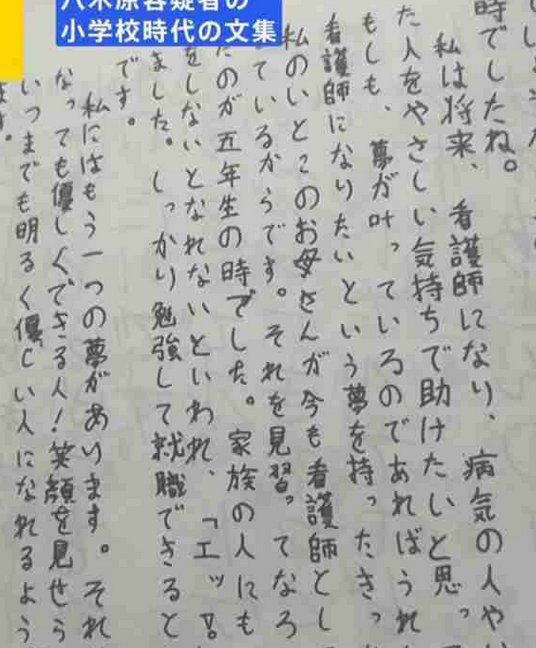 八木原容疑者の
小学校時代の文集
時でしたね。
私は将来、看護師になり、病気の人や
た人をやさしい気持ちで助けたいと思っ
もしも、夢が叶っているのであればうれ
看護師になりたいという夢を持ったきっ
私のいとこのお母さんが今も看護師とし
ているからです。それを見習ってなろ
たのが五年生の時でした。家族の人にも
をしないとなれないといわれ、「エッ!
ました。しっかり勉強して就職できると
です。
私にはもう一つの夢があります。それ
なっても優しくできる人!笑顔を見せら
いつまでも明るく優しい人になれるよう
ます。